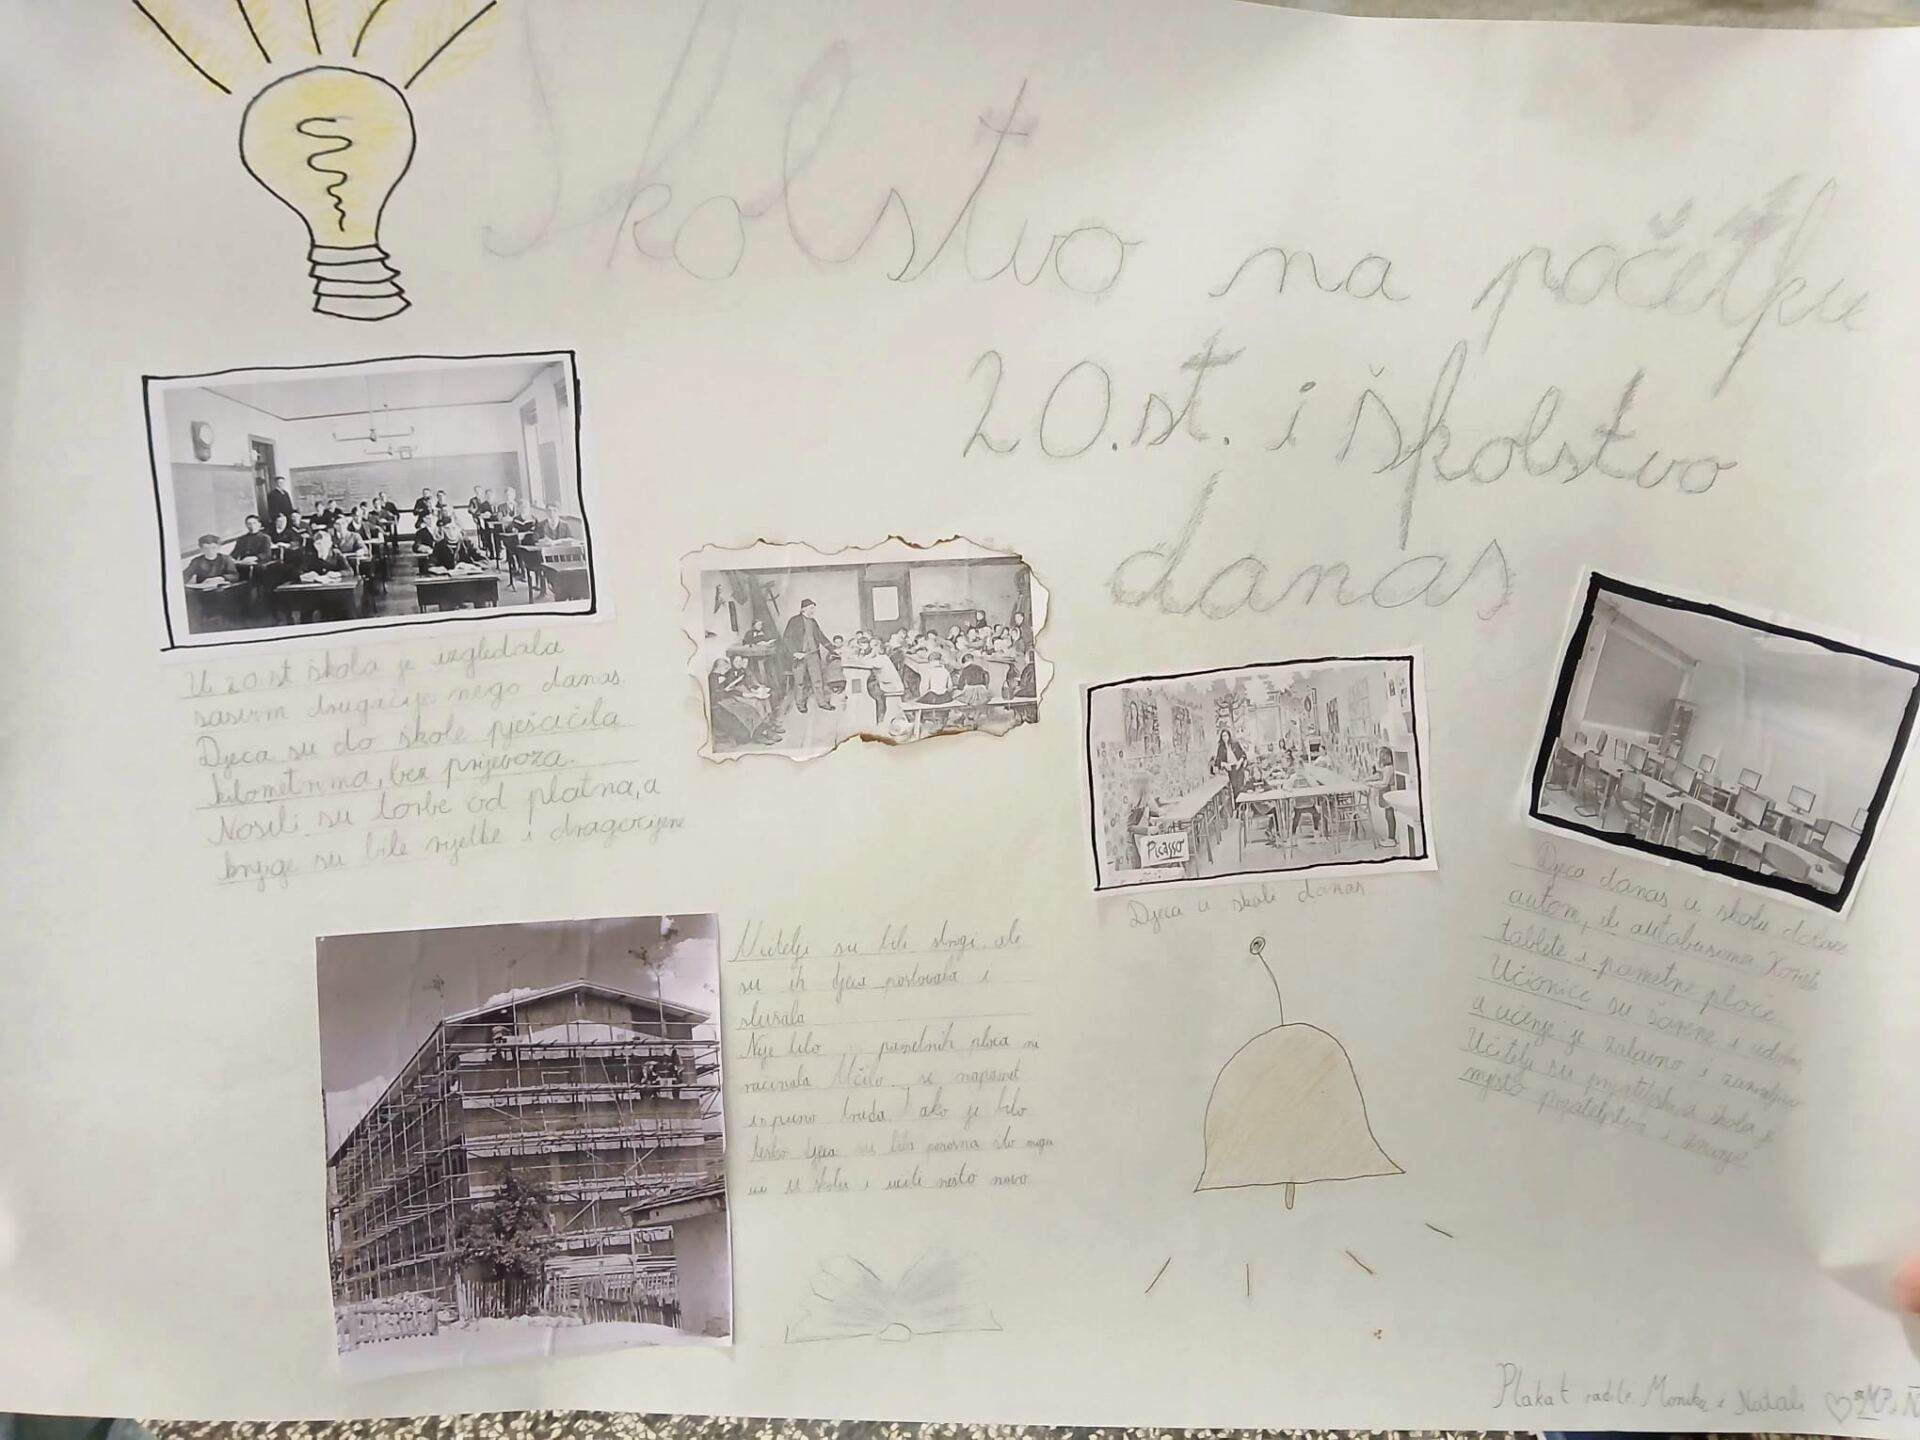 Školstvo na početku
20.st. i školstvo
danas
U 20 st škola je izgledala
sasvim drugačije nego danas.
Djeca su do škole pješačila
kilometrima, bez prijevoza.
Nosili su torbe od platna, a
knjige su bile rijetke i dragocijene
Učitelji su bili strogi, ali
su ih djeca poštovala i
slušala
Nije bilo pametnih ploča ni
računala Učilo se napamet
i s puno truda Iako je bilo
teško djeca su bila ponosna što mogu
ići u školu i učiti nešto novo
Picasso
Djeca u školi danas
Djeca danas u školu dolaze
autom, ili autobusima Koriste
tablete i pametne ploče.
Učionice su šarene i udobne,
a učenje je zabavno i zanimljivo
Učitelji su prijateljski a škola je
mjesto prijateljstva i znanja
Plakat radile: Monika i Natali